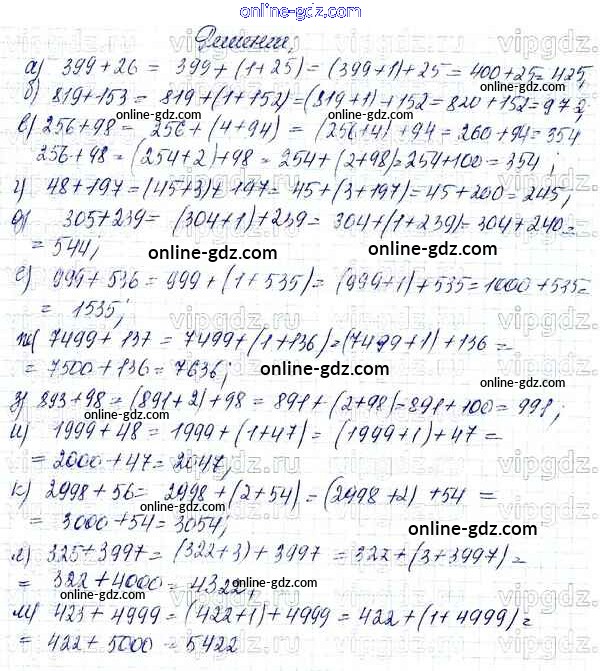 online-gdz.com
Решение;
а) 399+26 = 399+(1+25)=(399+1)+25=400+25=425;
б) 819+153 = 819+(1+152)=(819+1)+152=820+152=972;
в) 256+98 = 256+(4+94) = (256+4)+94=260+94=354
256+98=(254+2)+98=254+(2+98)=254+100=354;
г) 48+197=(45+3)+197=45+(3+197)=45+200=245;
д) 305+239= (304+1)+239=304+(1+239)=304+240=
= 544;
online-gdz.com online-gdz.com
е) 999+536 = 999+(1+535)= (999+1)+535=1000+535=
= 1535;
ж) 7499+137 = 7499+(1+136)=(7499+1)+136=
= 7500+136=7636;
з) 893+98=(891+2)+98=891+(2+98)=891+100=991;
и) 1999+48=1999+(1+47)=(1999+1)+47=
=2000+47=2047;
к) 2998+56= 2998+(2+54)=(2998+2)+54=
= 3000+54=3054;
л) 325+3997=(322+3)+3997=322+(3+3997)=
= 322+4000=4322;
м) 423+4999=(422+1)+4999=422+(1+4999)=
= 422+5000=5422
online-gdz.com